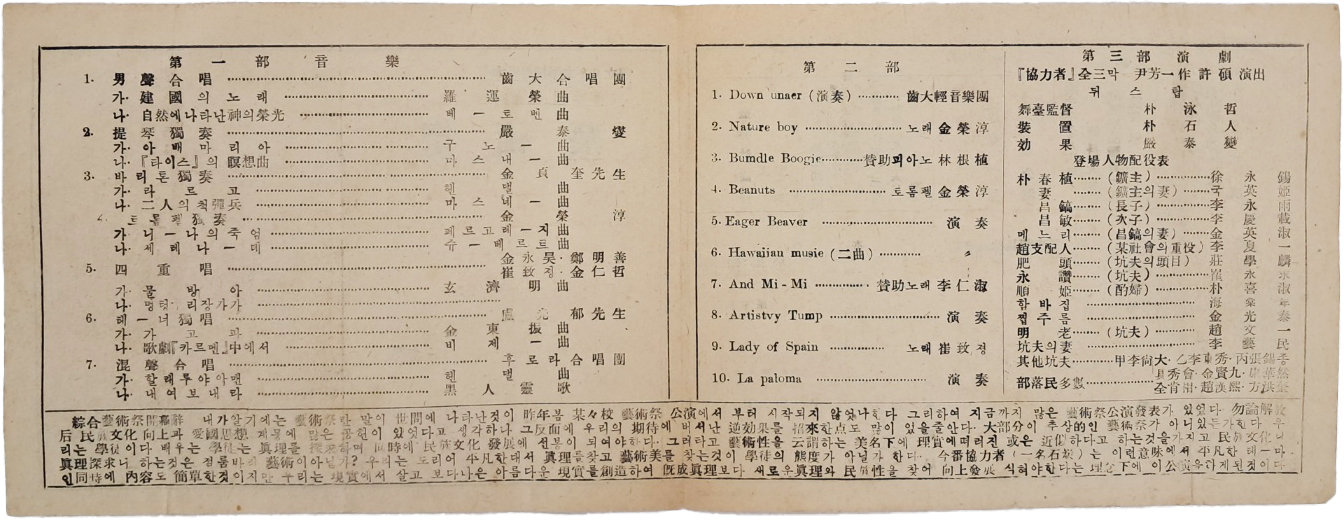 第一部 音樂
1. 男聲合唱 齒大合唱團
가· 建國의노래 羅運榮 曲
나· 自然에나타난神의榮光 베ー토벤 曲
2. 提琴獨奏 嚴泰燮
가· 아베마리아 구노ー 曲
나· 『타이스』의瞑想曲 마스내ー 曲
3. 바리톤獨奏 金貞奎先生
가· 라르고 헨델 曲
나· 二人의척彈兵 曲
4. 토롬펠獨奏 金榮淳
가· 니ー나의죽엄 페르고레ー지 曲
나· 세레나ー데 슈ー베르트 曲
5. 四重唱 金永昊·鄭明善
崔致정·金仁哲
가· 물방아 玄濟明 曲
나·
6. 테ー너獨唱 郁先生
가· 가고파 金東振 曲
나· 歌劇『카르멘』中에서 비제ー 曲
7. 混聲合唱 후로라合唱團
가· 할래루야아멘 헨델 曲
나· 내여보내라 黑人靈歌
第二部
1. Down unaer (演奏) 齒大輕音樂團
2. Nature boy 노래 金榮淳
3. Bumdle Boogie 賛助피아노 林根植
4. Beanuts 토롬펠 金榮淳
5. Eager Beaver 演奏
6. Hawaiian musie (二曲) 〃
7. And Mi-Mi 賛助노래 李仁淑
8. Artistvy Tump 演奏
9. Lady of Spain 노래 崔致정
10. La paloma 演奏
第三部 演劇
『協力者』全三막 尹芳一作 許碩演出
뒤스탑
舞臺監督 朴泳哲
裝置 朴石人
効果 嚴泰燮
登場人物配役表
朴春植 (鑛主) 徐永錫
妻 (鑛主의妻) 英姬
昌鎬 (長子) 李永雨
昌敏 (次子) 李慶載
메느리 (昌鎬의妻) 金英淑
趙支配人 (某社會의重役) 李夏一
肥頭 (坑夫의頭目) 莊學麟
永讚 (坑夫) 永
順姬 (酌婦) 朴喜淑
함바집 海
찝주름 金光泰
明老 (坑夫) 趙文一
坑夫의妻 李藝民
其他坑夫 甲李尙大·乙李東秀·丙張
秀會·金賢九
部落民多數
綜合藝術祭開幕辭 내가알기에는 藝術祭란 말이 世間에 나타난것이 昨年봄 某々校 藝術祭 公演에서 부터 시작되지 않엇나한다 그리하여 지금까지 많은 藝術祭公演發表가 있었다 勿論解放
后 民族文化 向上과 愛國思想 啓蒙에 많은 있었다고 생각하나 그反面에 우리의 期待에 버서난 逆効果를 招來한点도 많이 있을줄안다 大部分이 추상的인 藝術祭가 아니있는가한다 우
리는 學徒이다 배우는 學徒는 眞理를 探求하며 同時에 民族文化 發展에 선봉이 되여야하다 그러타고 藝術性을 云謂하는 美名下에 理實에떠러진 或은 近似하다고 하는것을가지고 民族文化니
眞理深求니 하는것은 참藝術이아닐가? 우리는 도리어 平凡한대서 眞理를찾고 藝術美를 찾는것이 學徒의 態度가 아닐가 한다 今番協力者 (一名石炭) 는 이런意味에서 平凡한 테ー마
인同時에 內容도 簡單한것이지만 우리는 現實에서 살고 보다나은 아름다운 現實를創造하여 旣成眞理보다 새로운眞理와 民族性을 찾어 向上發展 식혀야한다는 理念下에 이公演을하게된것이다